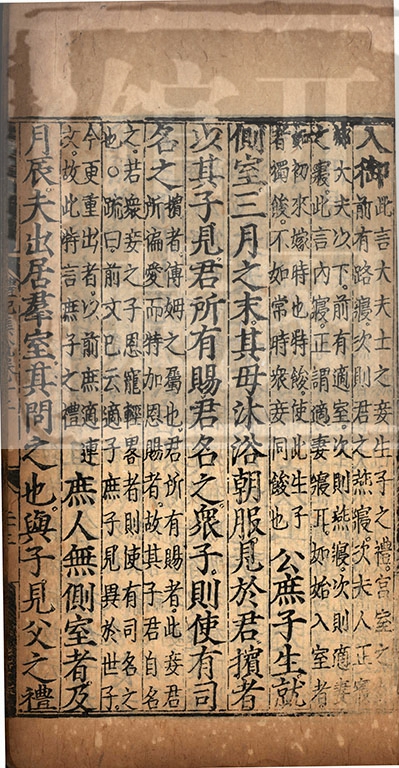 入御
此言大夫士之妾生子之禮。宮室之
前有路寢。次則君之燕寢。次夫人正寢
大夫以下。前有適室。次則燕寢。次則適妻
之寢。此言內寢。正謂適妻寢耳。如始入室者
如初來嫁時也。特餕。使此生子
者獨餕。不如常時衆妾同餕也
公庶子生。就
側室。三月之末。其母沐浴朝服。見於君。擯者
以其子見。君所有賜。君名之。衆子。則使有司
名之。
擯者。傅姆之屬也。君所有賜者。此妾君
所偏愛而特加恩賜者。故其子君自名
之。若衆妾之子恩寵輕畧者。則使有司名之
也。疏曰。前文已云適子庶子見異於世子。
今更重出者。以前庶適連
文。故此特言庶子之禮
庶人無側室者。及
月辰。夫出居羣室。其問之也。與子見父之禮